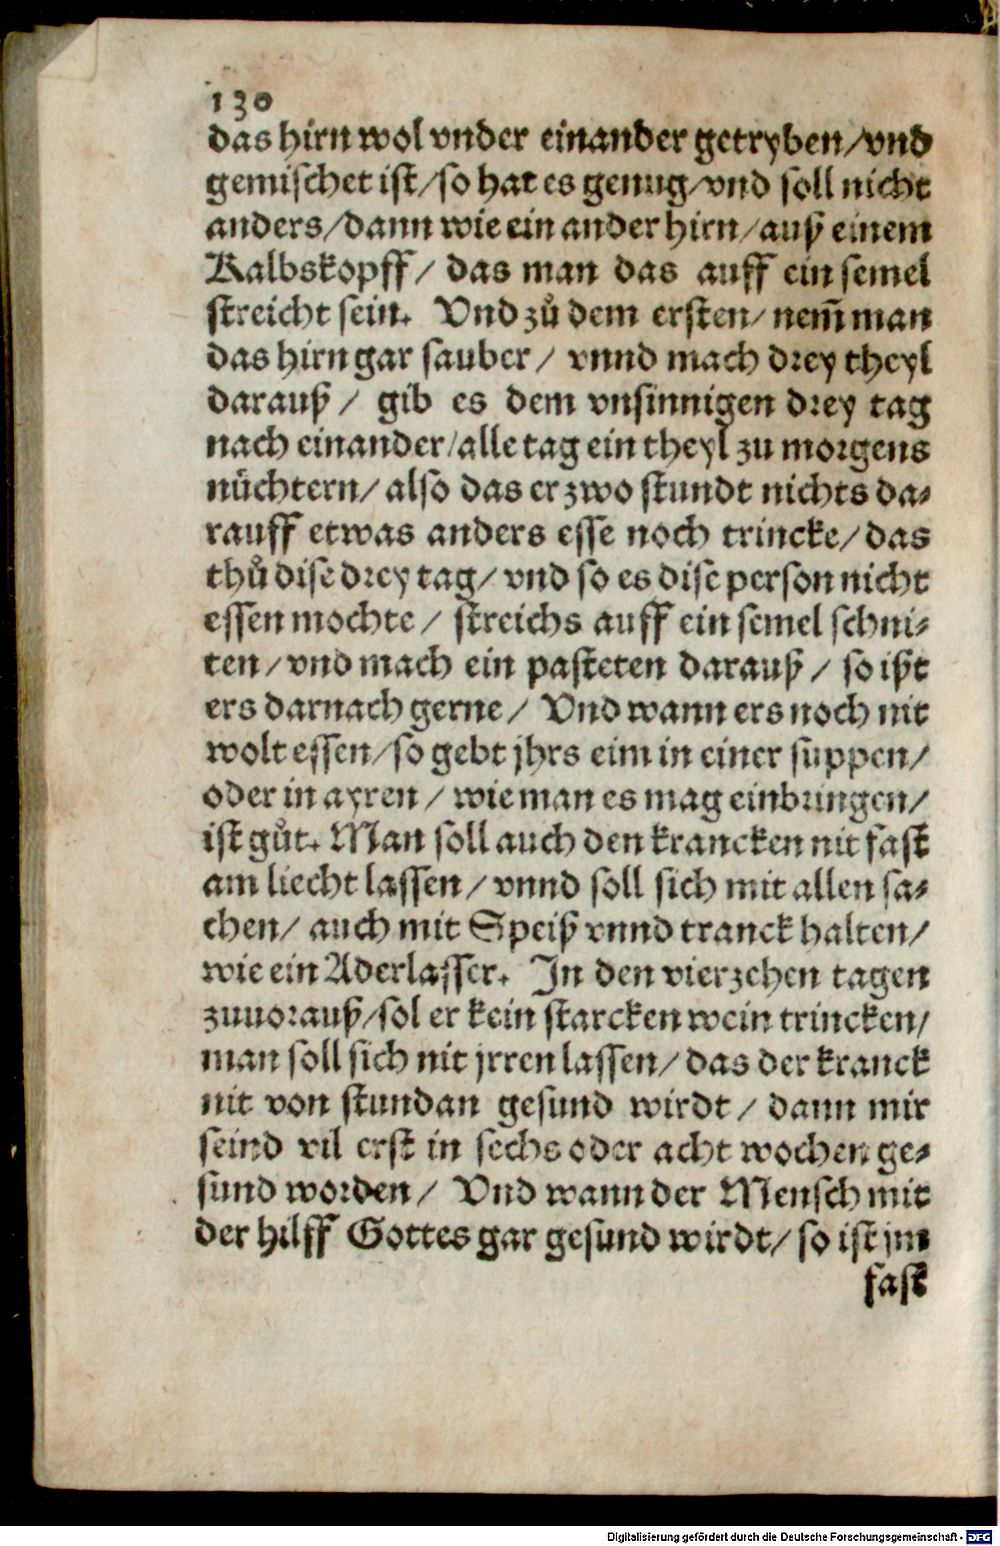 130
das hirn wol vnder einander getryben/vnd
gemischet ist/so hat es genug/vnd soll nicht
anders/dann wie ein ander hirn/auß einem
Kalbskopff/ das man das auff ein semel
streicht sein. Vnd zů dem ersten/nem̃ man
das hirn gar sauber/ vnnd mach drey theyl
darauß/ gib es dem vnsinnigen drey tag
nach einander/alle tag ein theyl zu morgens
nüchtern/also das er zwo stundt nichts da⸗
rauff etwas anders esse noch trincke/das
thů dise drey tag/vnd so es dise person nicht
essen mochte/ streichs auff ein semel schni⸗
ten/vnd mach ein pasteten darauß/ so ißt
ers darnach gerne/ Vnd wann ers noch nit
wolt essen/so gebt jhrs eim in einer suppen/
oder in ayren/ wie man es mag einbringen/
ist gůt. Man soll auch den krancken nit fast
am liecht lassen/ vnnd soll sich mit allen sa⸗
chen/ auch mit Speiß vnnd tranck halten/
wie ein Aderlasser. In den vierzehen tagen
zuuorauß/sol er kein starcken wein trincken/
man soll sich nit jrren lassen/das der kranck
nit von stundan gesund wirdt/ dann mir
seind vil erst in sechs oder acht wochen ge⸗
sund worden/ Vnd wann der Mensch mit
der hilff Gottes gar gesund wirdt/so ist jm
fast
Digitalisierung gefördert durch die Deutsche Forschungsgemeinschaft - DFG